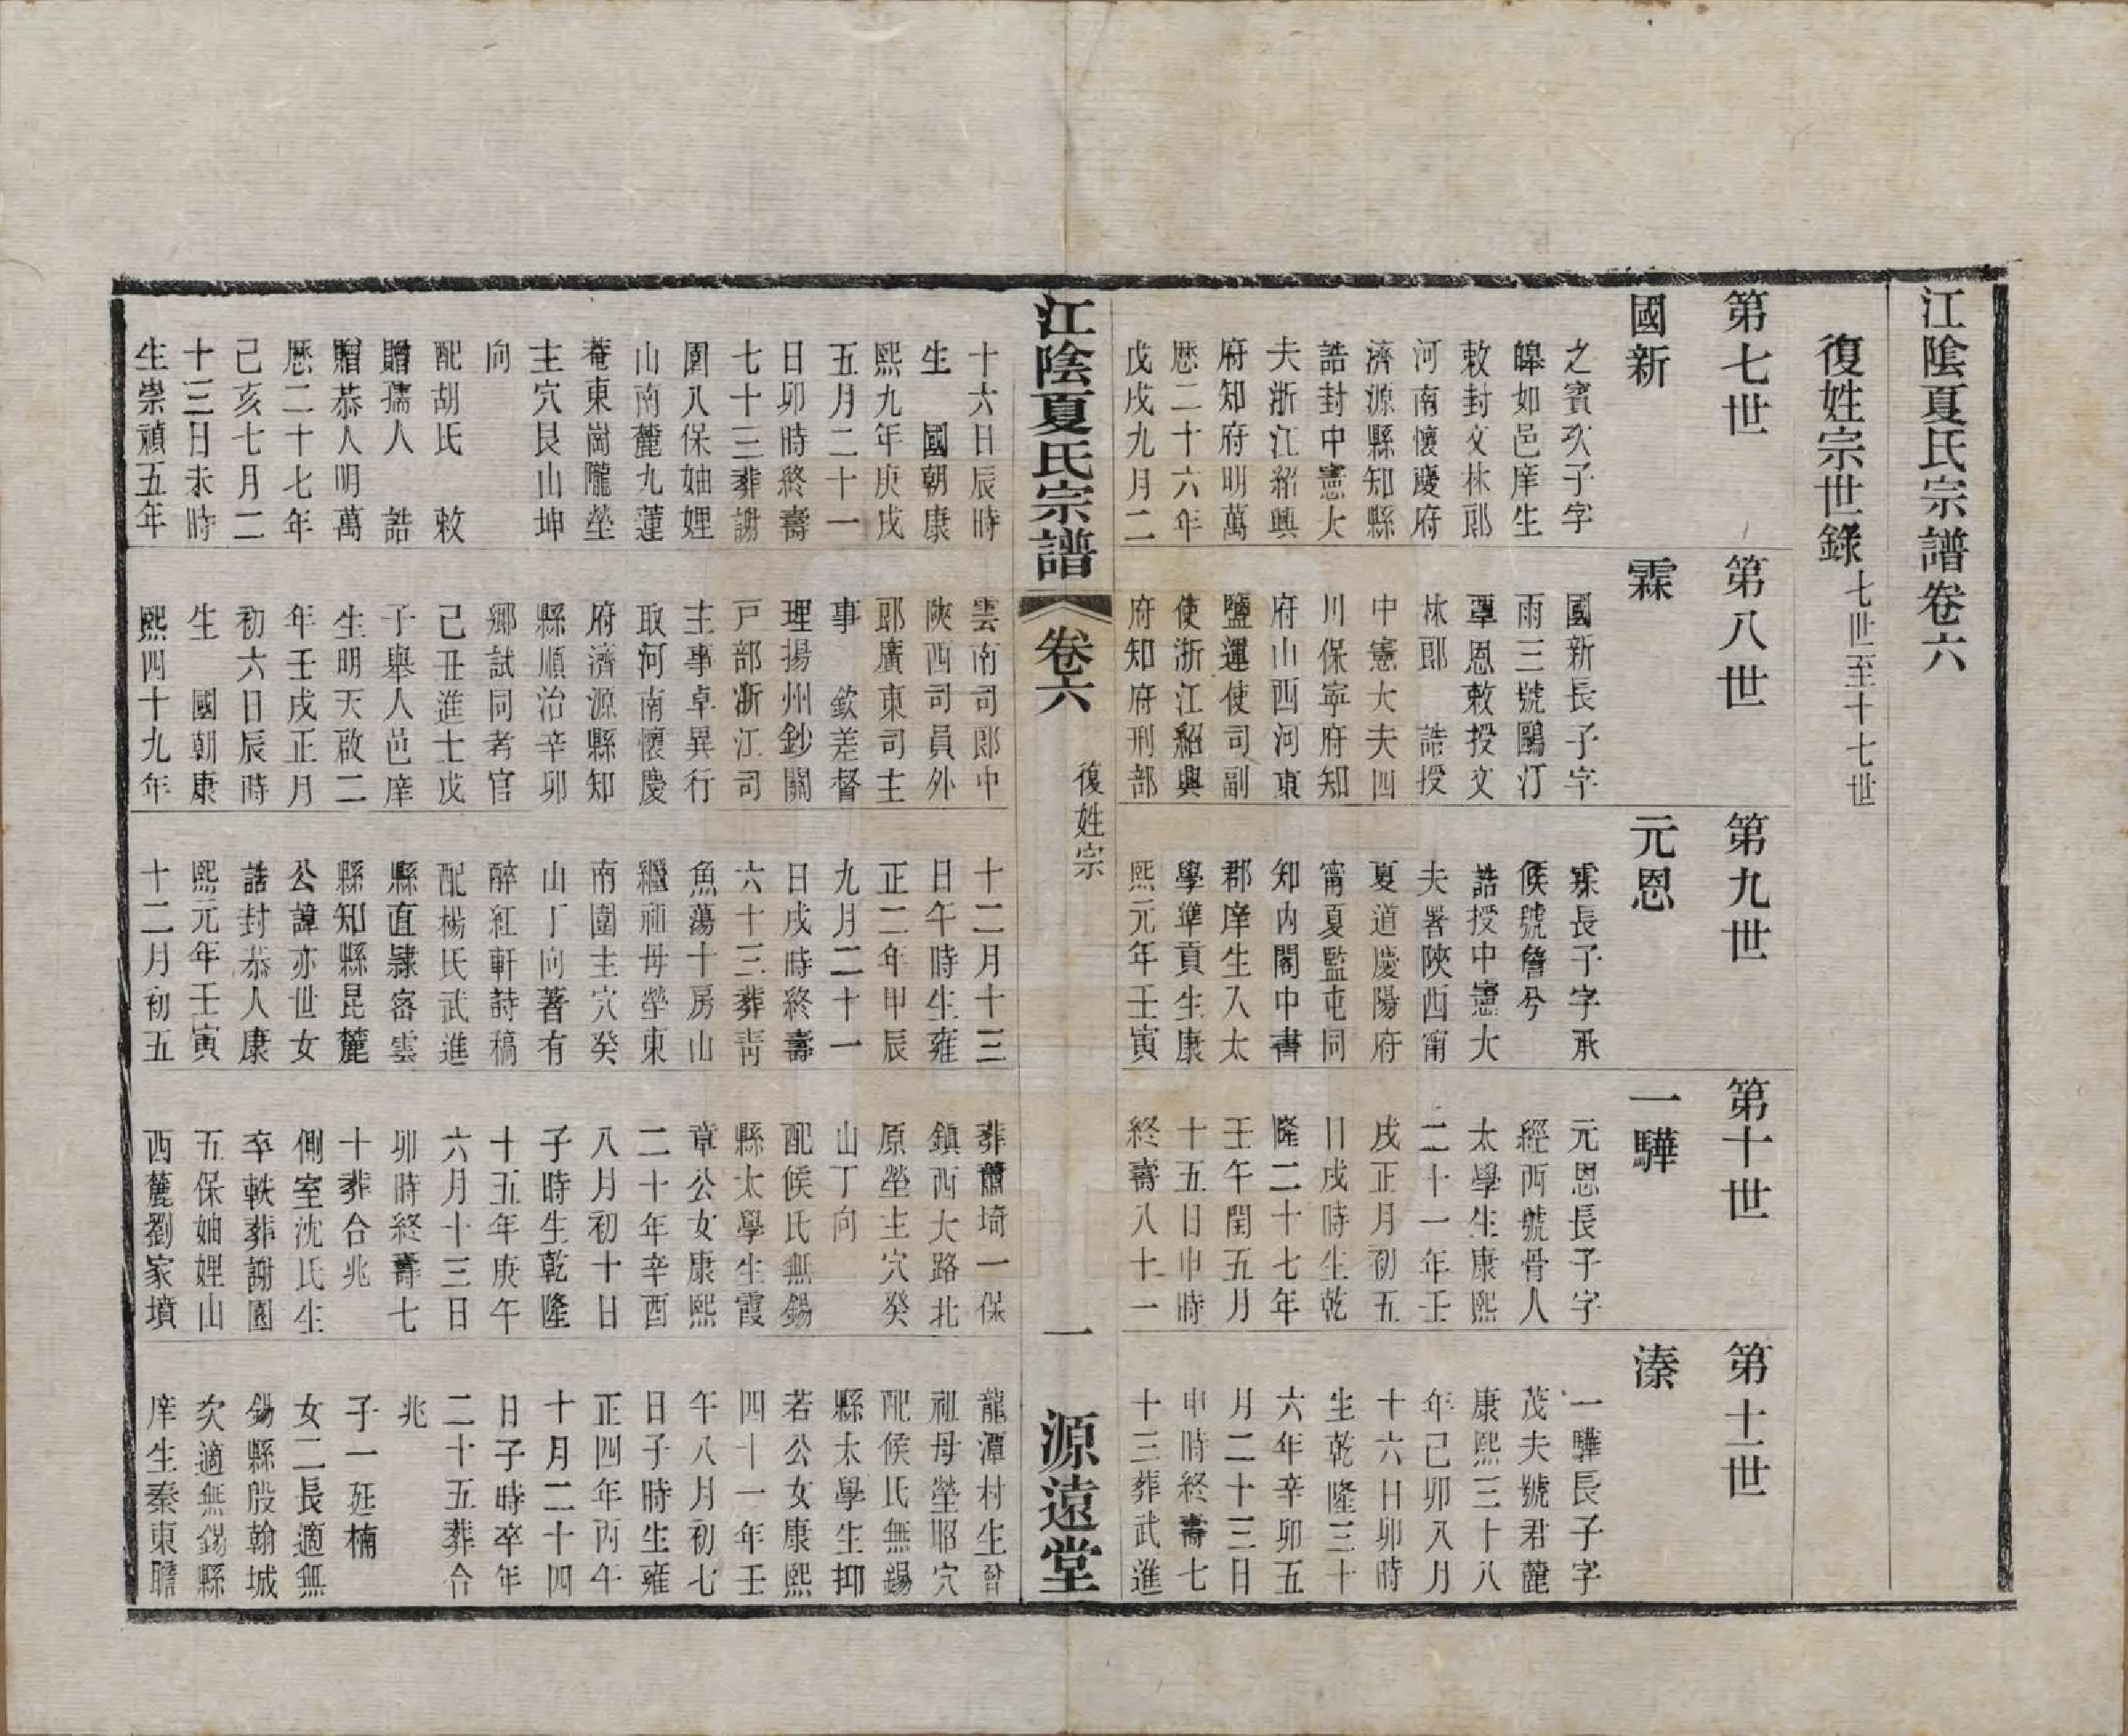 江陰夏氏宗譜卷六
復姓宗世錄七世至十七世
第七世
國新
之賓次子字
皥如邑庠生
敕封文林郎
河南懷慶府
濟源縣知縣
誥封中憲大
夫浙江紹興
府知府明萬
厯二十六年
戊戌九月二
十六日辰時
生　國朝康
熙九年庚戌
五月二十一
日卯時終壽
七十三葬謝
園八保妯娌
山南麓九蓮
菴東崗隴塋
主穴艮山坤
向
配胡氏　敕
贈孺人　誥
贈恭人明萬
厯二十七年
己亥七月二
十三日未時
生崇禎五年
第八世
霖
國新長子字
雨三號鷗汀
覃恩敕授文
林郎　誥授
中憲大夫四
川保寧府知
府山西河東
鹽運使司副
使浙江紹興
府知府刑部
雲南司郎中
陝西司員外
郎廣東司主
事　欽差督
理揚州鈔關
戸部浙江司
主事卓異行
取河南懷慶
府濟源縣知
縣順治辛卯
鄉試同考官
己丑進士戊
子舉人邑庠
生明天啟二
年壬戌正月
初六日辰時
生　國朝康
熙四十九年
第九世
元恩
霖長子字承
候號詹兮
誥授中憲大
夫署陝西甯
夏道慶陽府
甯夏監屯同
知內閣中書
郡庠生入太
學準貢生康
熙元年壬寅
十二月十三
日午時生雍
正二年甲辰
九月二十一
日戌時終壽
六十三葬靑
魚蕩十房山
繼祖母塋東
南圍主穴癸
山丁向著有
醉紅軒詩稿
配楊氏武進
縣直隸密雲
縣知縣昆麓
公諱亦世女
誥封恭人康
熙元年壬寅
十二月初五
第十世
一驊
元恩長子字
經西號骨人
太學生康熙
二十一年壬
戌正月初五
日戌時生乾
隆二十七年
壬午閏五月
十五日申時
終壽八十一
葬蕭埼一保
鎮西大路北
原塋主穴癸
山丁向
配候氏無錫
縣太學生霞
章公女康熙
二十年辛酉
八月初十日
子時生乾隆
十五年庚午
六月十三日
卯時終壽七
十葬合兆
側室沈氏生
卒軼葬謝園
五保妯娌山
西麓劉家墳
第十一世
溱
一驊長子字
茂夫號君麓
康熙三十八
年己卯八月
十六日卯時
生乾隆三十
六年辛卯五
月二十三日
申時終壽七
十三葬武進
龍潭村生晉
祖母塋昭穴
配候氏無錫
縣太學生抑
若公女康熙
四十一年壬
午八月初七
日子時生雍
正四年丙午
十月二十四
日子時卒年
二十五葬合
兆
子一延楠
女二長適無
錫縣殷翰城
次適無錫縣
庠生秦東瞻
江陰夏氏宗譜
卷六
復姓宗
一
源遠堂